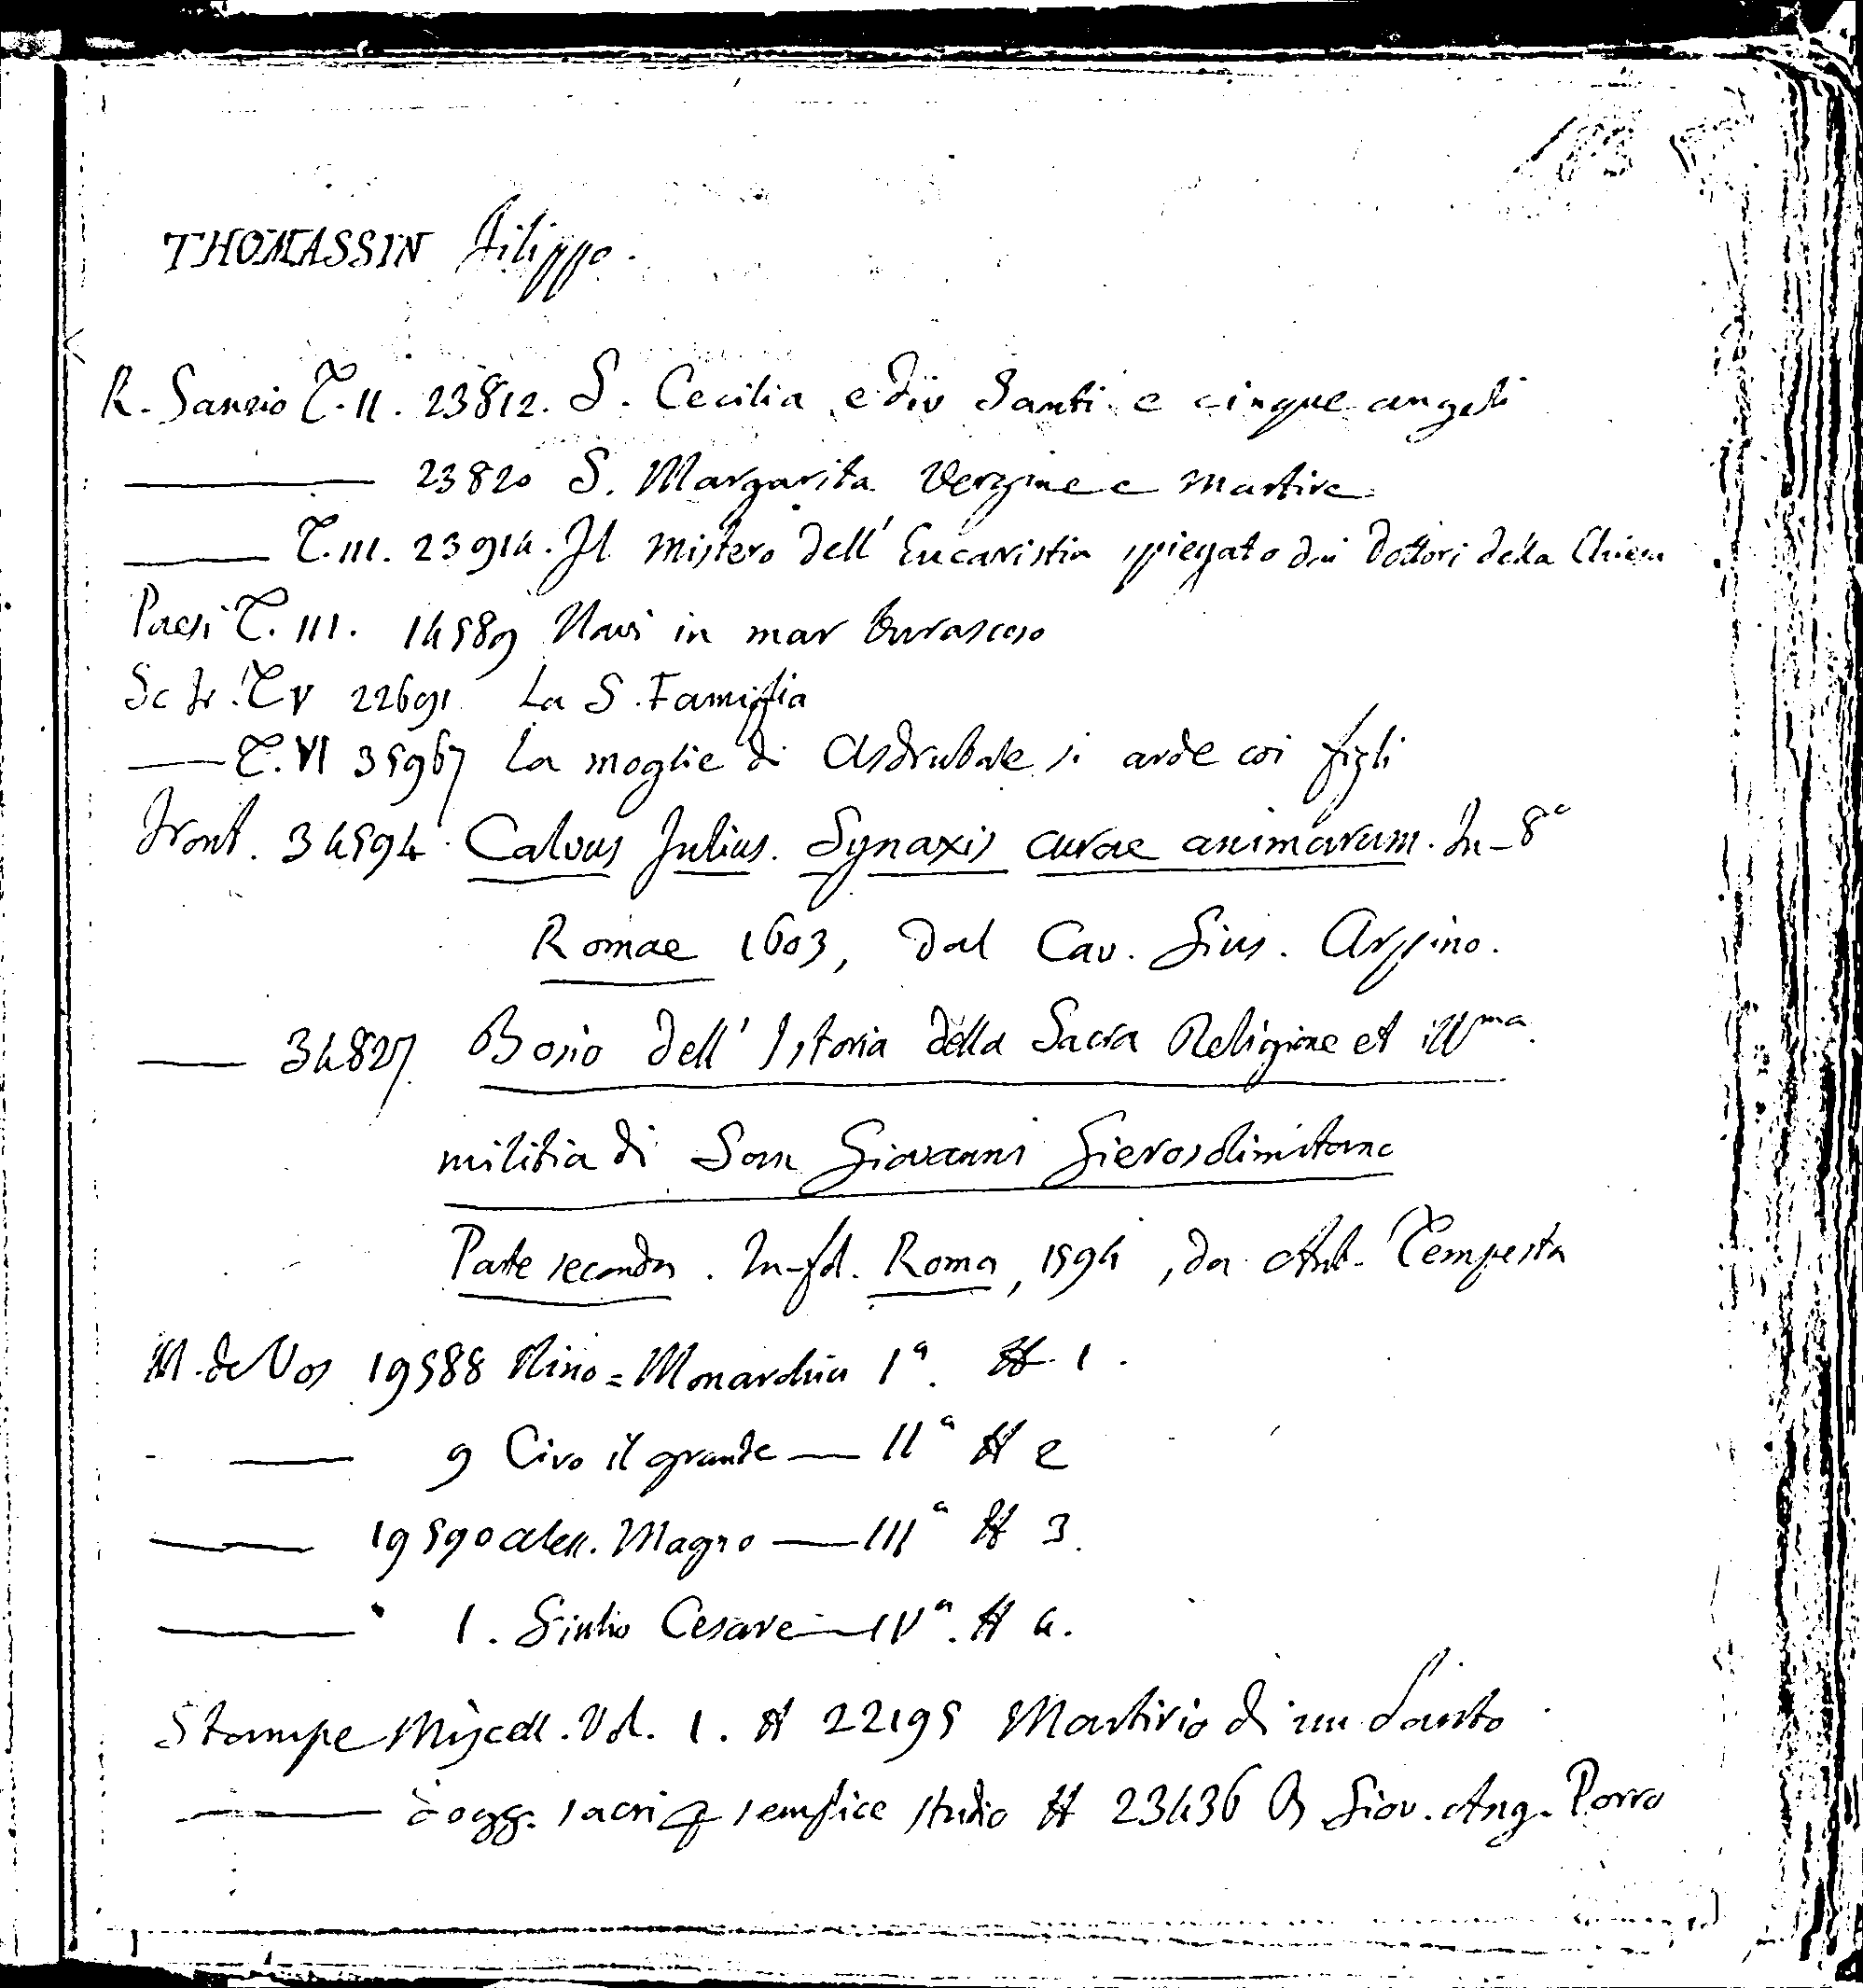 THOMASSIN Filippo.
R. Sanzio T. II. 23812. S. Cecilia e div Santi e cinque angeli
23820 S. Margarita Vergine e martire
T. III. 23914. Il mistero dell' Eucaristia spiegato dai Dottori della Chiesa
Paesi T. III. 14589 Navi in mar burascoso
Sc fr. T V 22691 La S. Famiglia
T. VI 35967 La moglie di Asdrubale si arde coi figli
Front. 34594. Calvus Julius. Synaxis curae animarum. In-8°
Romae 1603, dal Cav. Gius. Arpino.
34827. Bosio dell' Istoria della Sacra Religione et illma.
militia di San Giovanni Gierosolimitano
Parte seconda. In-fol. Roma, 1594, da Ant. Tempesta
M. de Vos 19588 Nino = Monarchia Iª. N 1.
9 Ciro il grande — IIª N 2
19590 Aless. Magno — IIIª N 3.
1. Giulio Cesare — IVª. N 4.
Stampe Miscell. Vol. 1. N 22195 Martirio di un Santo
Sogg. sacri p semplice studio N 23436 B Giov. Ang. Porro